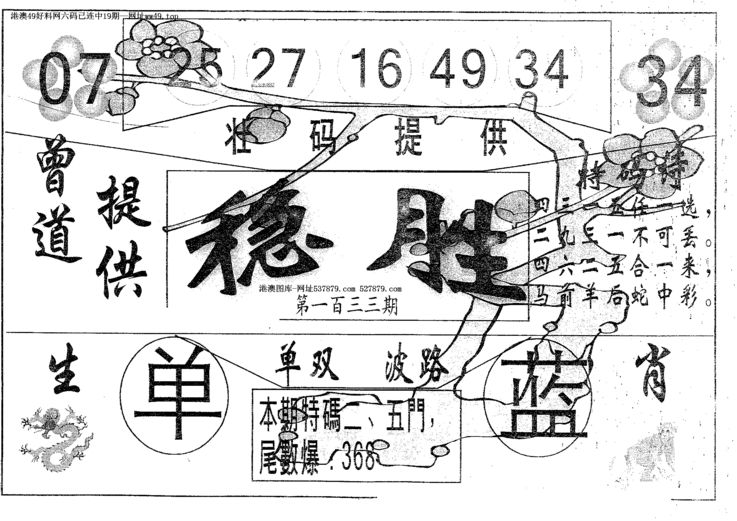 港澳49好料网六码已连中19期--网址ww49.top
07 25 27 16 49 34 34
壮码提供
曾道
提供
稳胜
港澳图库-网址537879.com 527879.com
第一百三三期
特码诗
四三一五任一选，
二九三一不可丢。
四六二五合一来，
马前羊后蛇中彩。
生
单
单双 波路
蓝
肖
本期特碼二、五門，
尾數爆：368